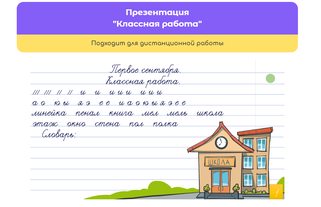 Презентация
"Классная работа"
Подходит для дистанционной работы
Первое сентября.
Классная работа.
линейка пенал книга мел моль школа
этаж окно стена пол полка
Словарь:
ШКОЛА